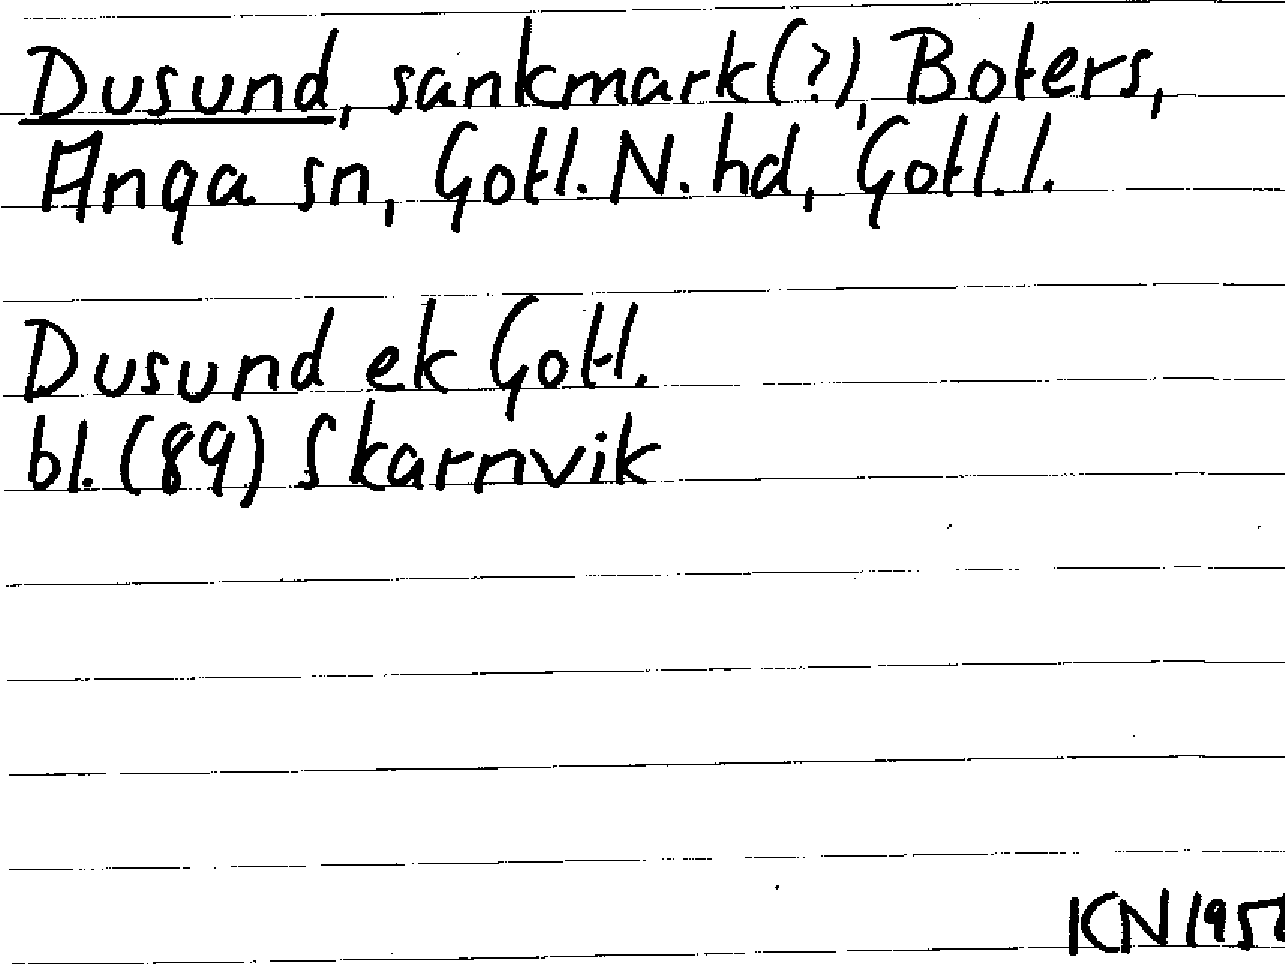 Dusund, sankmark(?), Boters,
Anga sn, Gotl. N. hd, Gotl. l.
Dusund ek Gotl.
bl. (89) Skarnvik
KN